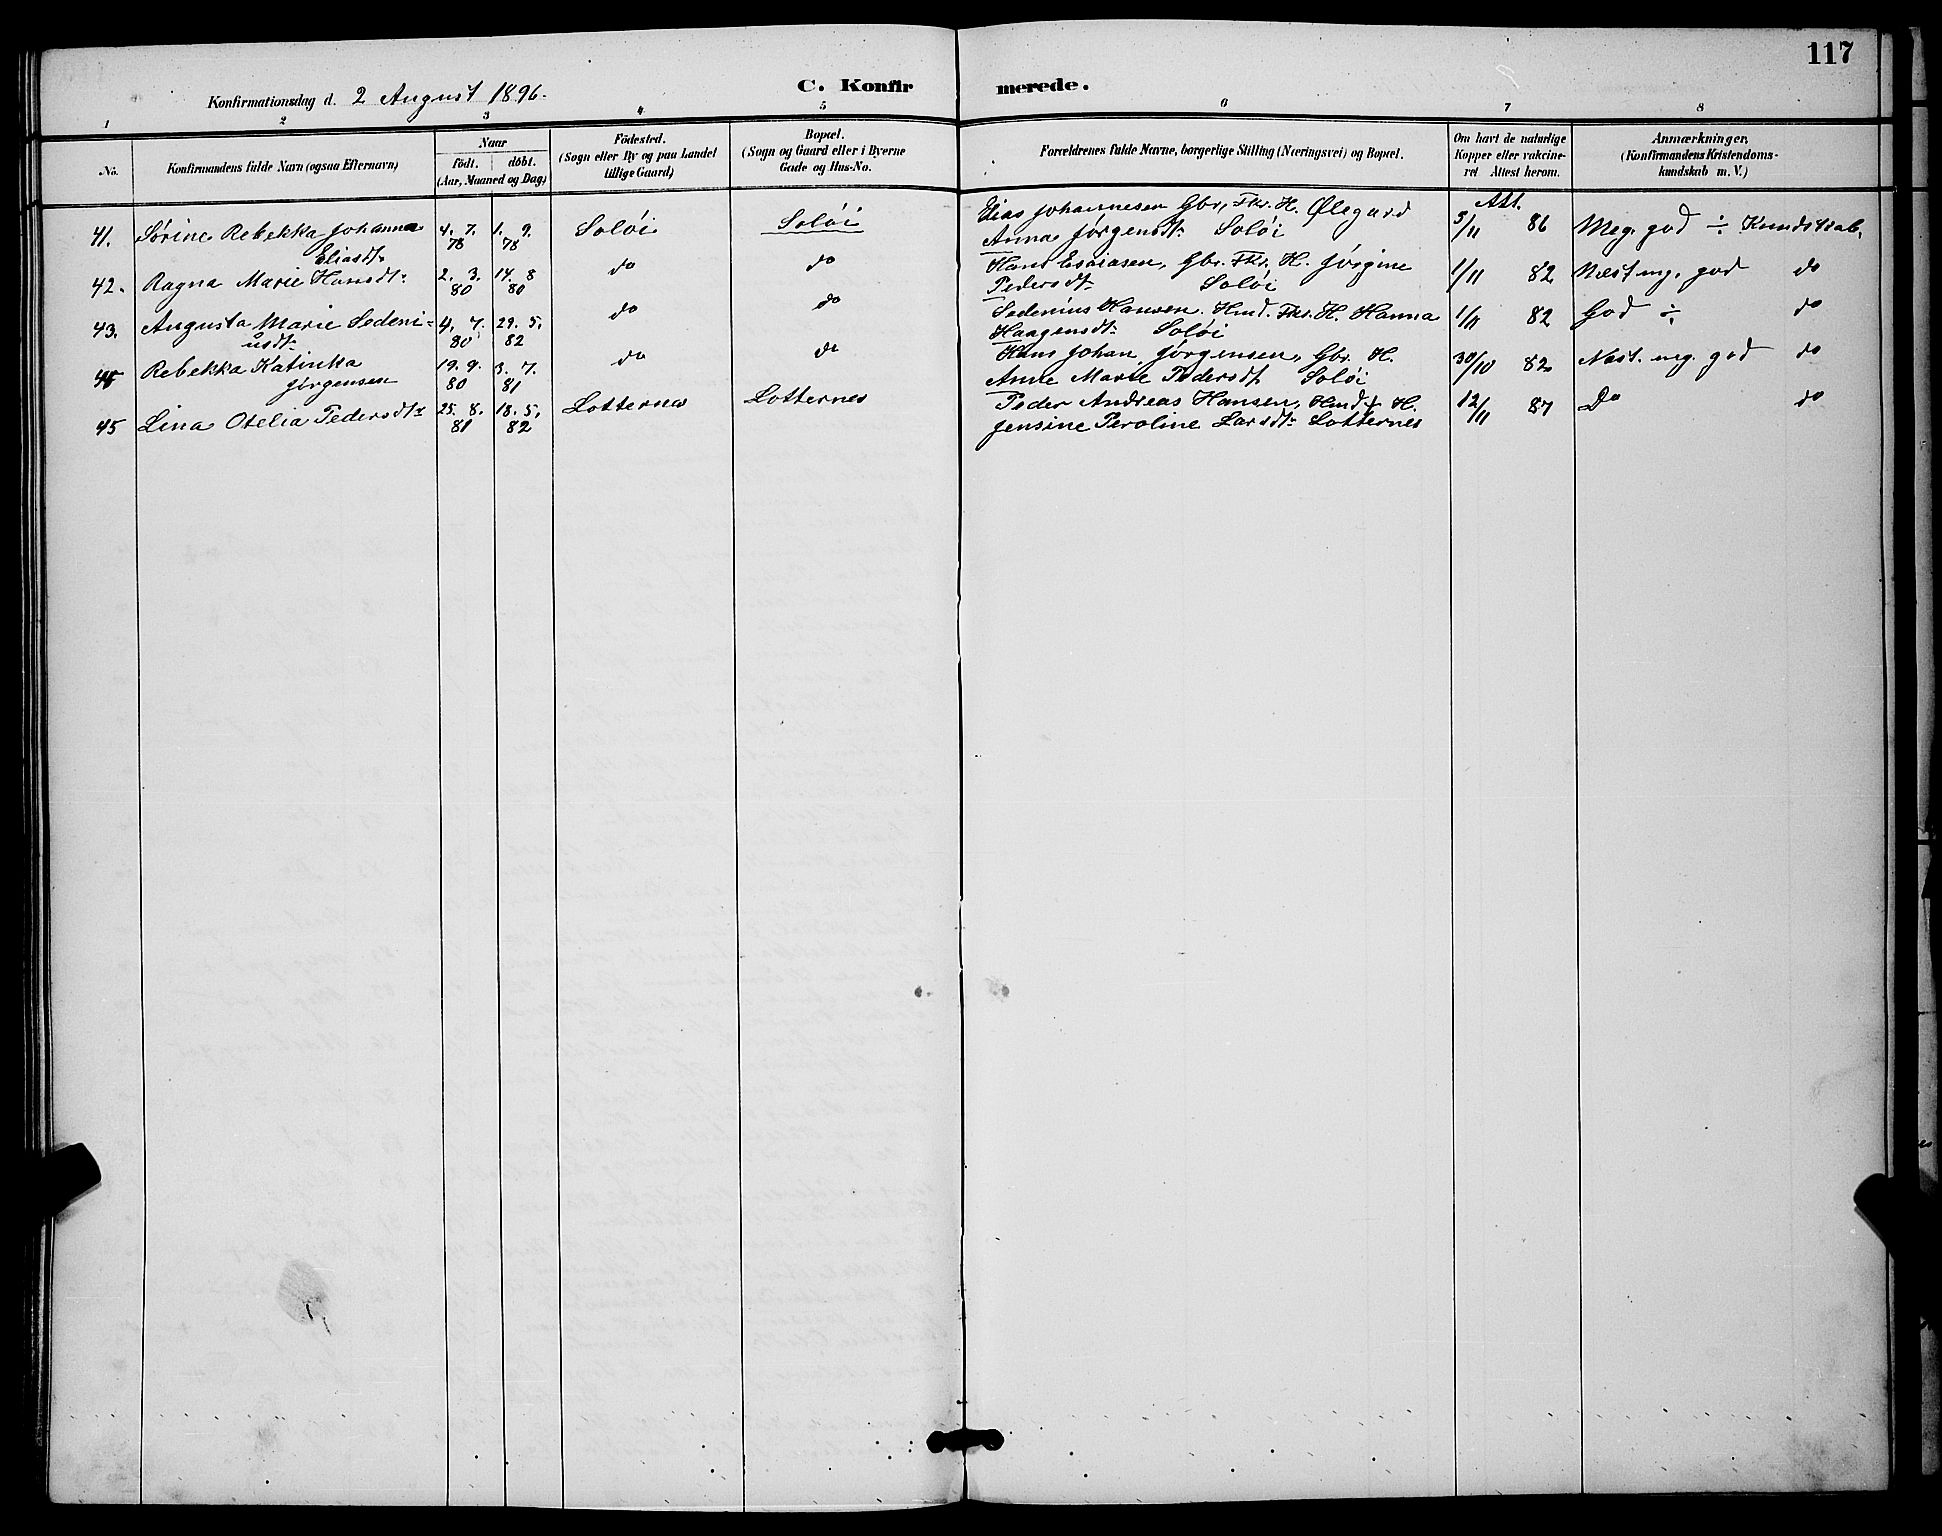 117
C. Konfirmerede.
Konfirmationsdag d. 2 August 1896.
1 2 3 4 5 6 7 8
No. Konfirmandens fulde Navn (ogsaa Efternavn) Naar födt. döbt. (Aar, Maaned og Dag) Födested. (Sogn eller By og paa Landet tillige Gaard) Bopæl. (Sogn og Gaard eller i Byerne Gade og Hus-No. Forældrenes fulde Navne, borgerlige Stilling (Næringsvei) og Bopæl. Om havt de naturlige Kopper eller vakcineret Attest herom. Anmærkninger, (Konfirmandens Kristendomskundskab m. V.)
Att.
41. Sørine Rebekka Johanna 4. 7. 1. 9. Soløi Soløi Elias Johannesen Gbr, Fkr. H. Ølegard 5/11 86 Meg. god ÷ Kundskab.
Eliasdt. 78 78 Anna Jørgensdt. Soløi
42. Ragna Marie Hansdt. 2. 3. 14. 8 do do Hans Esaiasen, Gbr. Fkr. H. Jørgine 1/11 82 Næst mg. god do
80 80 Pedersdt. Soløi
43. Augusta Marie Sedeni- 4. 7. 29. 5. do do Sedenius Hansen. Hmd. Fkr. H. Hanna 1/11 82 God ÷ do
usdt. 80 82 Haagensdt. Soløi
Rebekka Katinka 19. 9. 3. 7. do do Hans Johan Jørgensen, Gbr. H. 30/10 82 Næst. mg. god do
Jørgensen 80 81 Anne Marie Pedersdt. Soløi
45 Lina Otelia Pedersdt. 25. 8. 18. 5. Lotternes Lotternes Peder Andreas Hansen, Hmd. H. 12/11 87 Do do
81 82 Jensine Peroline Larsdt. Lotternes